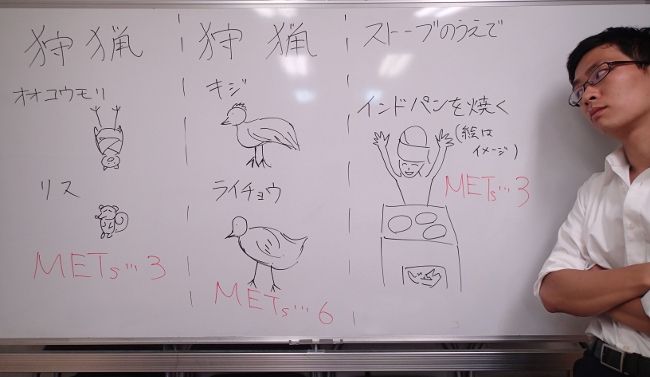 狩猟
オオコウモリ
リス
METs…3
狩猟
キジ
ライチョウ
METs…6
ストーブのうえで
インドパンを焼く
(絵は
イメージ)
METs…3